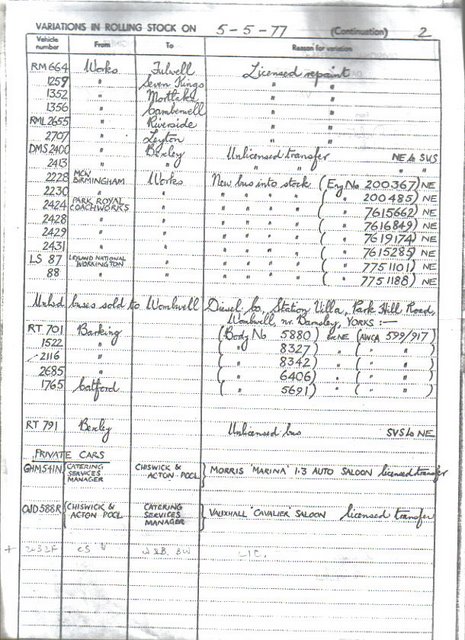 VARIATIONS IN ROLLING STOCK ON 5-5-77 (Continuation) 2
Vehicle number From To Reason for variation
RM 664 Works Fulwell Licensed repaint
1259 " Seven Kings " "
1352 " Mortlake " "
1356 " Camberwell " "
RML 2655 " Riverside " "
2707 " Leyton " "
DMS 2400 " Bexley Unlicensed transfer NE to SVS
2413 " " " " " "
2228 MCW BIRMINGHAM Works New bus into stock (Eng No 200367) NE
2230 " " " " " " ( " 200485) NE
2424 PARK ROYAL COACHWORKS " " " " " ( " 7615662) NE
2428 " " " " " " ( " 7616849) NE
2429 " " " " " " ( " 7619174) NE
2431 " " " " " " ( " 7615285) NE
LS 87 LEYLAND NATIONAL WORKINGTON " " " " " ( " 7751101) NE
88 " " " " " " ( " 7751188) NE
Unlsd buses sold to Wombwell Diesel Co, Station Villa, Park Hill Road,
Wombwell, nr. Barnsley, YORKS :—
RT 701 Barking (Body No 5880) NE (AWCA 599/917)
1522 " ( " 8327) " ( " " )
2116 " ( " 8342) " ( " " )
2685 " ( " 6406) " ( " " )
1765 Catford ( " 5691) " ( " " )
RT 791 Bexley Unlicensed bus SVS to NE
PRIVATE CARS
GHM 541N CATERING SERVICES MANAGER CHISWICK & ACTON POOL } MORRIS 'MARINA' 1·3 AUTO SALOON licensed transfer
OJD 588R CHISWICK & ACTON POOL CATERING SERVICES MANAGER } VAUXHALL 'CAVALIER' SALOON licensed transfer